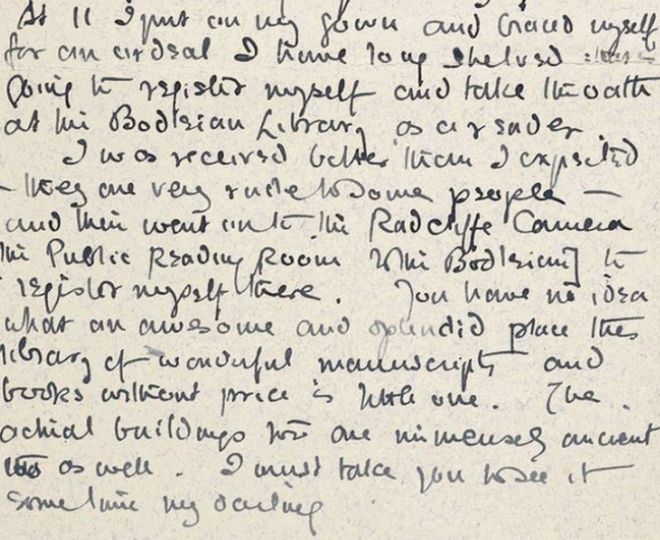 At 11 I put on my gown and braced myself
for an ordeal I have long shelved
going to register myself and take the oath
at the Bodleian Library as a reader.
I was received better than I expected
– they are very rude to some people –
and then went on to the Radcliffe Camera
the Public Reading Room to the Bodleian] to
register myself there. You have no idea
what an awesome and splendid place this
library of wonderful manuscripts and
books without price is little one. The
actual buildings too are immensely ancient
as well. I must take you to see it
sometime my darling